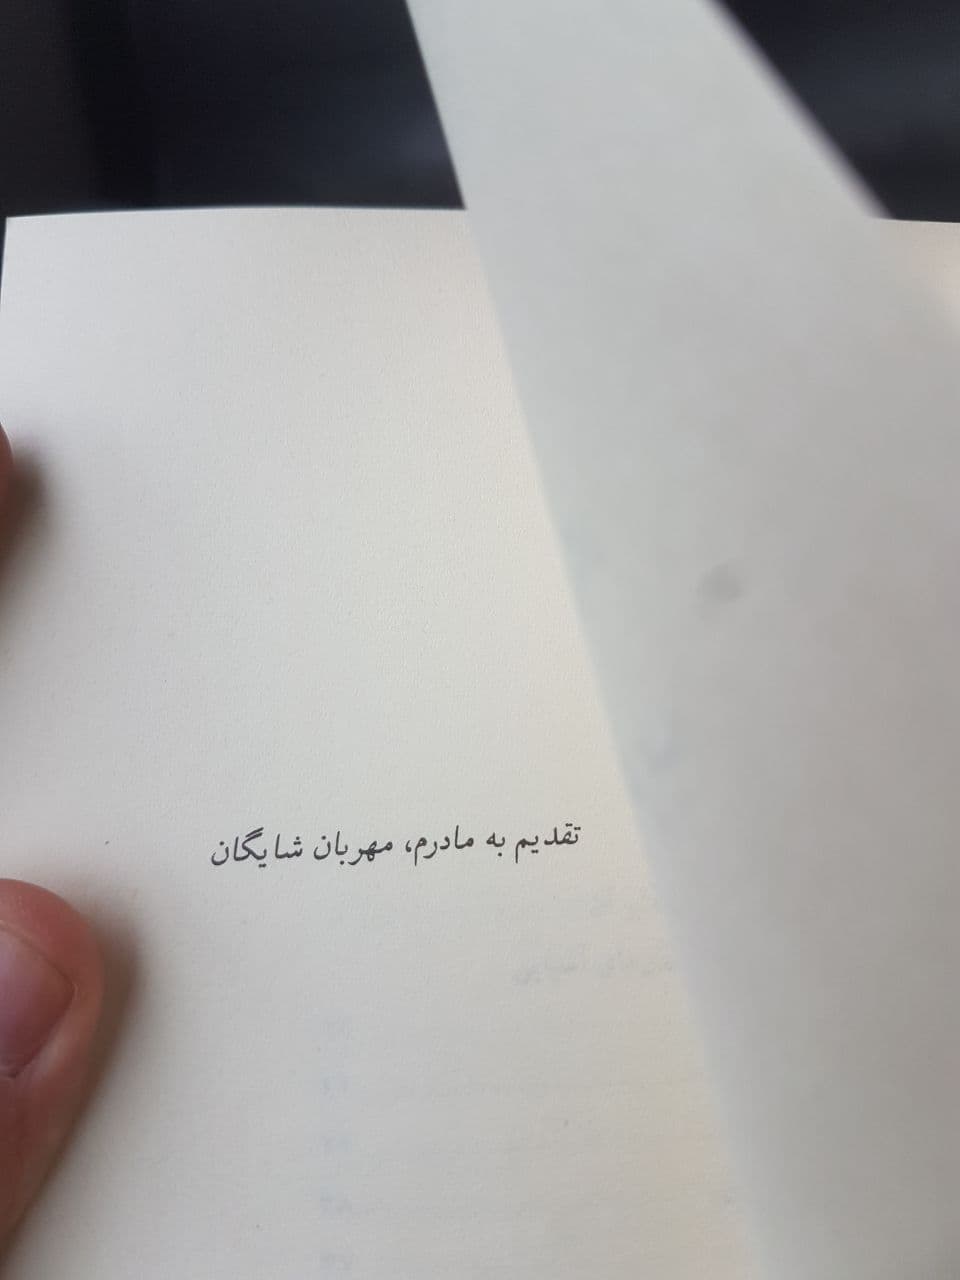 تقدیم به مادرم، مهربان شایگان